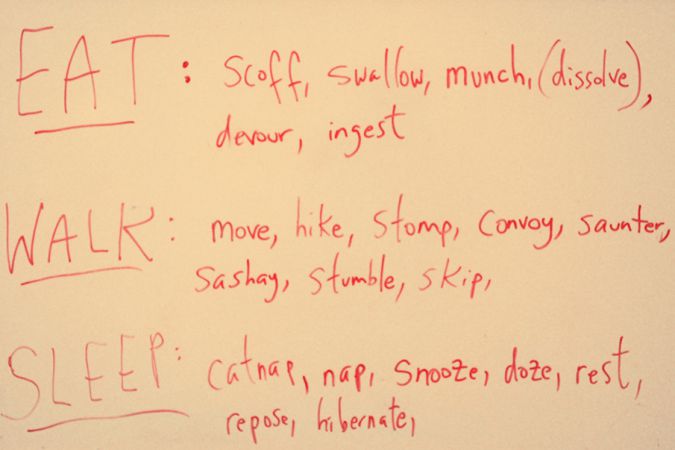 EAT: scoff, swallow, munch, (dissolve),
devour, ingest
WALK: move, hike, stomp, convoy, saunter,
sashay, stumble, skip,
SLEEP: catnap, nap, snooze, doze, rest,
repose, hibernate,